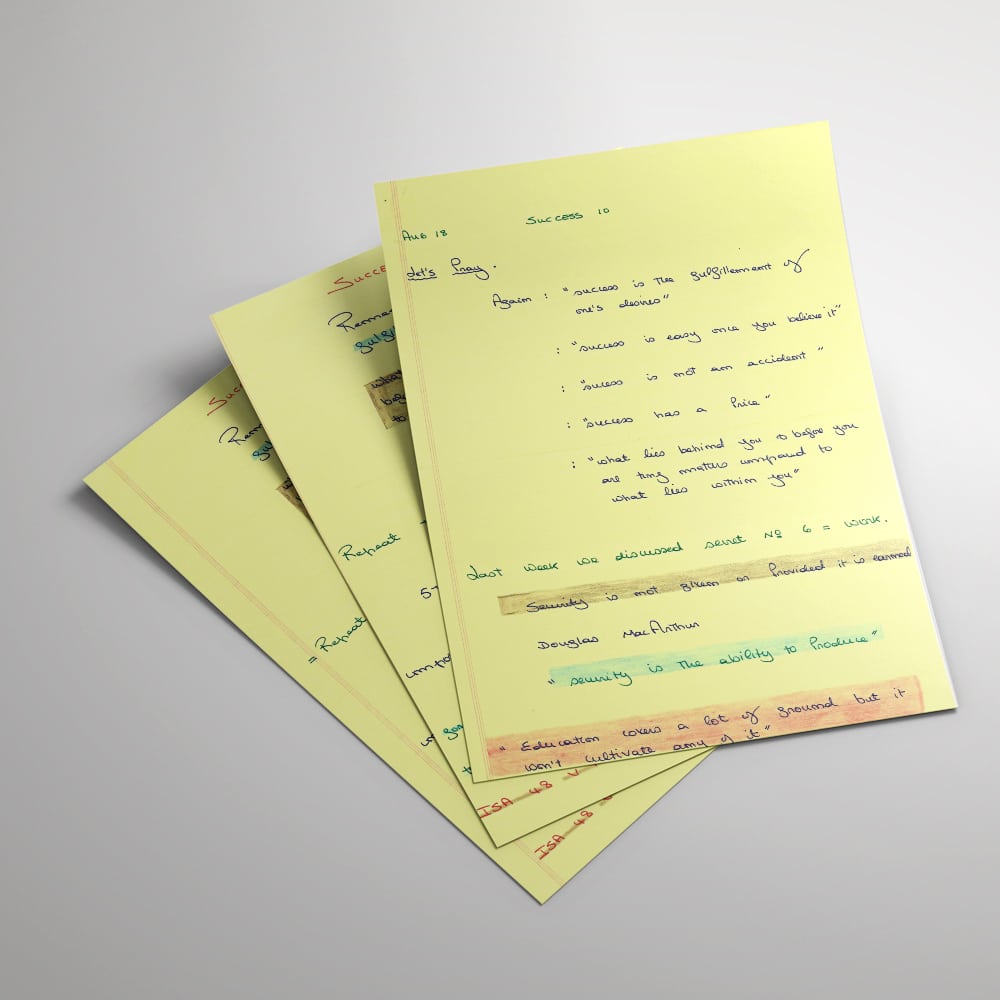 Success 10
Aug 18
Let's Pray.
Again : "success is The fulfillement of
one's desires"
: "success is easy once you believe it"
: "sucess is not an accident"
: "success has a Price"
: "what lies behind you & before you
are tiny matters compared to
what lies within you"
Last week we discussed secret No 6 = work.
Security is not given or Provided it is earned
Douglas MacArthur
"security is The ability to Produce"
"Education covers a lot of ground but it
won't cultivate any of it"
Succe
Rema
fulf
what
befo
to
Repeat
5-
compo
ISA 48 v
Succ
Rem
ful
= Repeat
ISA 48